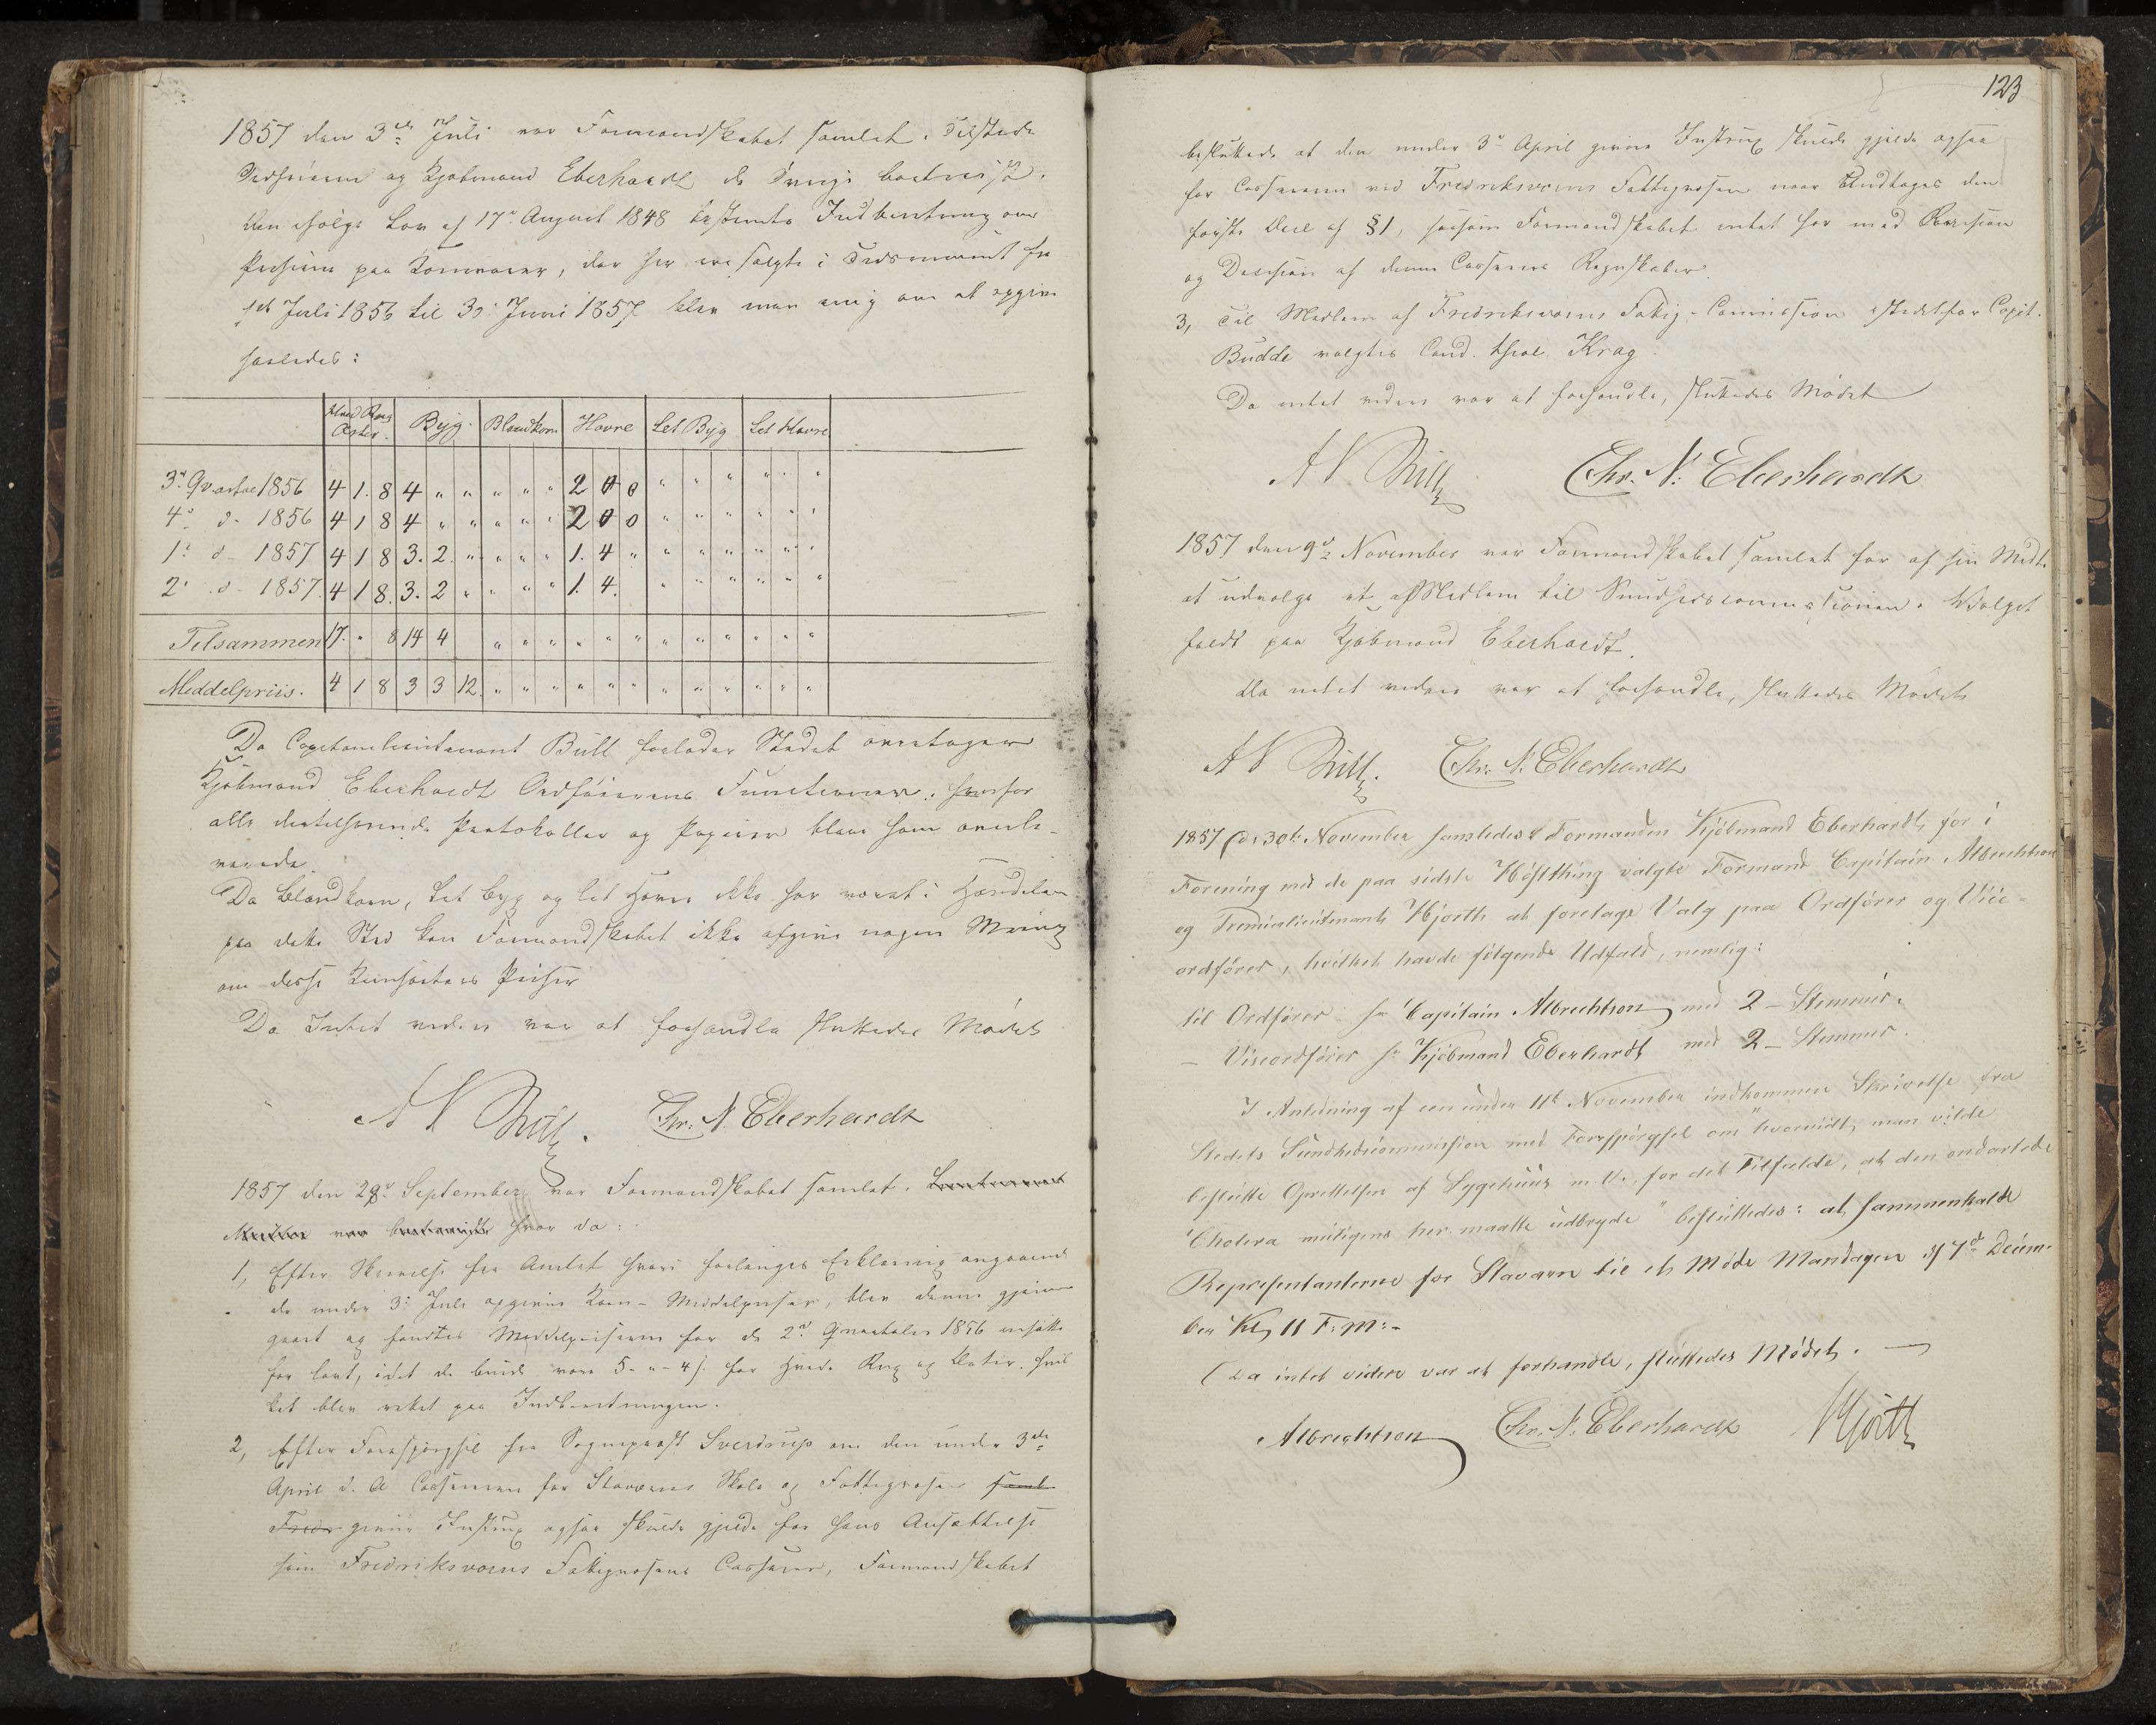 1857 den 3die Juli var Formandskabet samlet. Tilstede
Ordføreren og Kjøbmand Eberhardt de Øvrige bortreiste.
den ifølge Lov af 17de August 1848 bestemte Indberetning om
Priserne paa Kornvarer, der her ere solgte i Tidsrummet fra
1ste Juli 1856 til 30 Juni 1857 blev man enig om at opgive
saaledes:
Hvede Rug Erter. Byg. Blandkorn Havre Let Byg Let Havre
3die Qvartal 1856 4 1. 8 4 " " " " " 2 0 0 " " " " " "
4de d- 1856 4 1 8 4 " " " " " 2 0 0 " " " " " "
1ste d- 1857 4 1 8 3. 2. " " " " 1. 4 " " " " " " "
2det d- 1857. 4 1 8. 3. 2 " " " " 1. 4. " " " " " "
Tilsammen 17. " 8 14 4 " " " " " " " " " " " "
Middelpriis. 4 1 8 3 3 12. " " " " " " " " " " " "
Da Capitainlieutenant Bull forlader Stedet overtager
Kjøbmand Eberhardt Ordførerens Functioner. hvorfor
alle dertilhørende Protokoller og Papirer bleve ham overle-
verede.
Da Blandkorn, let Byg og let Havre ikke har været i Handelen
paa dette Sted kan Formandskabet ikke afgive nogen Mening
om disse Kornsorters Priser
Da Intet videre var at forhandle sluttedes Mødet
A N Bull. Chr. N. Eberhardt
1857 den 28de September var Formandskabet samlet. Lieutenant
var hvor da:
1, Efter Skrivelse fra Amtet hvori forlanges Erklæring angaaende
de under 3die Juli opgivne Korn-Middelpriser, blev denne gjennem
gaaet og fandtes Middelpriserne for de 2de Qvartaler 1856 ansatte
for lavt, idet de burde være 5- "- 4 s. for Hvede Rug og Erter. hvil
ket blev rettet paa Indberetningen.
2, Efter Forespørgsel fra Sogneprest Sverdrup om den under 3die
April d. A. Cassereren for Staværns Skole og Fattigvæsen samt
Fredr givne Instrux ogsaa skulde gjelde for hans Ansættelse
som Fredriksværns Fattigvæsens Casserer, Formandskabet
123
besluttede at den under 3die April givne Instrux skulde gjelde ogsaa
for Cassereren ved Fredriksværns Fattigvæsen naar undtages den
første Deel af §1, saasom Formandskabet intet har med Revision
og Decision af denne Casserers Regnskaber.
3, Til Medlem af Fredriksværns Fattig-Commission istedetfor Capit.
Budde valgtes Cand. theol. Krag.
Da intet videre var at forhandle, sluttedes Mødet
A N Bull Chr. N. Eberhardt
1857 den 9de November var Formandskabet samlet for af sin Midte
at udvælge et Medlem til Sundhedscommissionen. Valget
faldt paa Kjøbmand Eberhardt.
Da intet videre var at forhandle, sluttedes Mødet
A N Bull. Chr. N. Eberhardt
1857 d: 30te November samledes Formanden Kjøbmand Eberhardt for i
Forening med de paa sidste Høstthing valgte Formænd Capitain Albrechtson
og Premierlieutenant Hjorth at foretage Valg paa Ordfører og Vice-
ordfører, hvilket havde følgende Udfald, nemlig:
til Ordfører Hr Capitain Albrechtson med 2 - Stemmer.
— Viceordfører Hr Kjøbmand Eberhardt med 2 - Stemmer.
I Anledning af een under 11te November indkommen Skrivelse fra
Stedets Sundhedscommission med Forespørgsel om "hvorvidt man vilde
beslutte Oprettelsen af Sygehuus m.V., for det Tilfælde, at den ondartede
Cholera muligens her maatte udbryde" besluttedes: at sammenkalde
Repræsentanterne for Staværn til et Møde Mandagen d 7de Decem-
ber Kl 11 F:M:-
Da intet videre var at forhandle, sluttedes Mødet. —
Albrechtson Chr. N. Eberhardt Hjorth